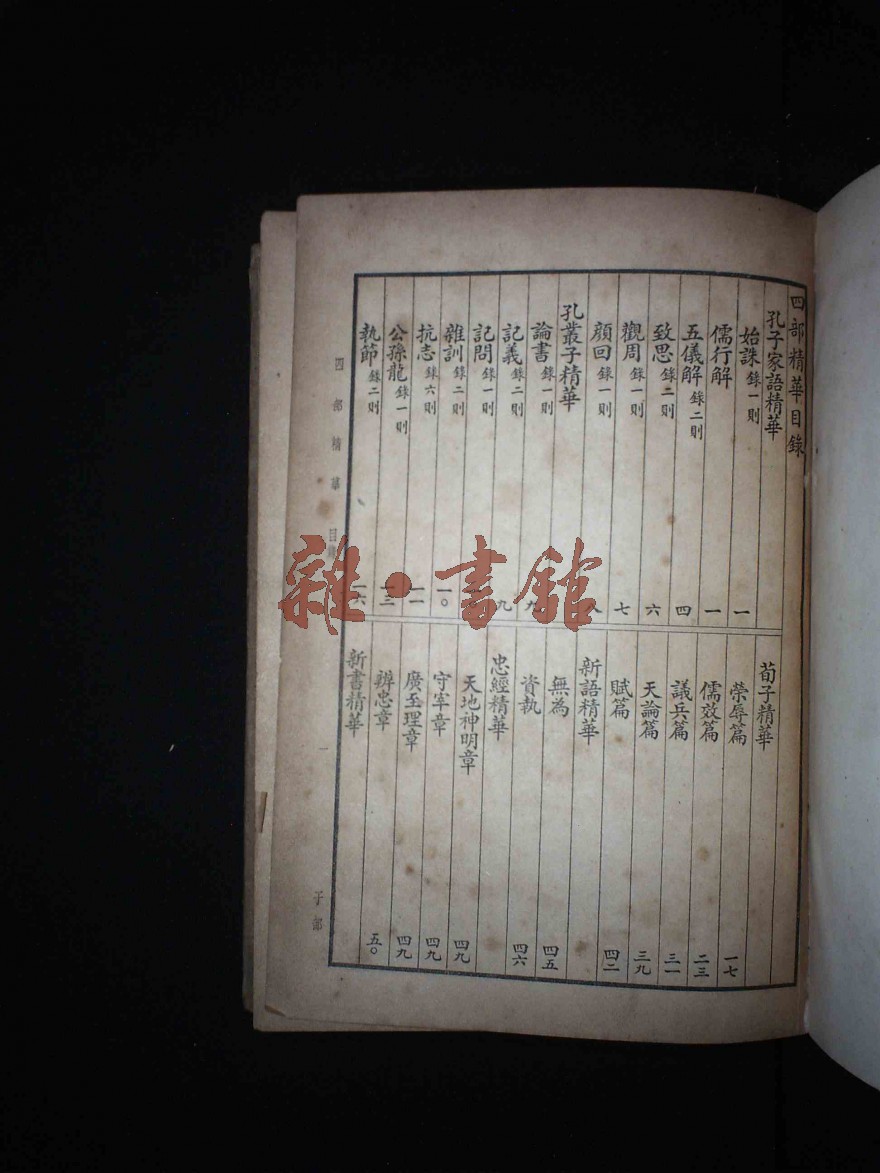 四部精華目錄
孔子家語精華
始誅 錄一則 一
儒行解 一
五儀解 錄二則 四
致思 錄二則 六
觀周 錄一則 七
顏回 錄一則 八
孔叢子精華
論書 錄一則 九
記義 錄二則 九
記問 錄一則
雜訓 錄二則 一〇
抗志 錄六則 一一
公孫龍 錄一則 一三
執節 錄二則 一六
荀子精華
榮辱篇 一七
儒效篇 二三
議兵篇 三一
天論篇 三九
賦篇 四二
新語精華
無為 四五
資執 四六
忠經精華
天地神明章 四九
守宰章 四九
廣至理章 四九
辨忠章 五〇
新書精華
四部精華 目錄
一
子部
雜·書館